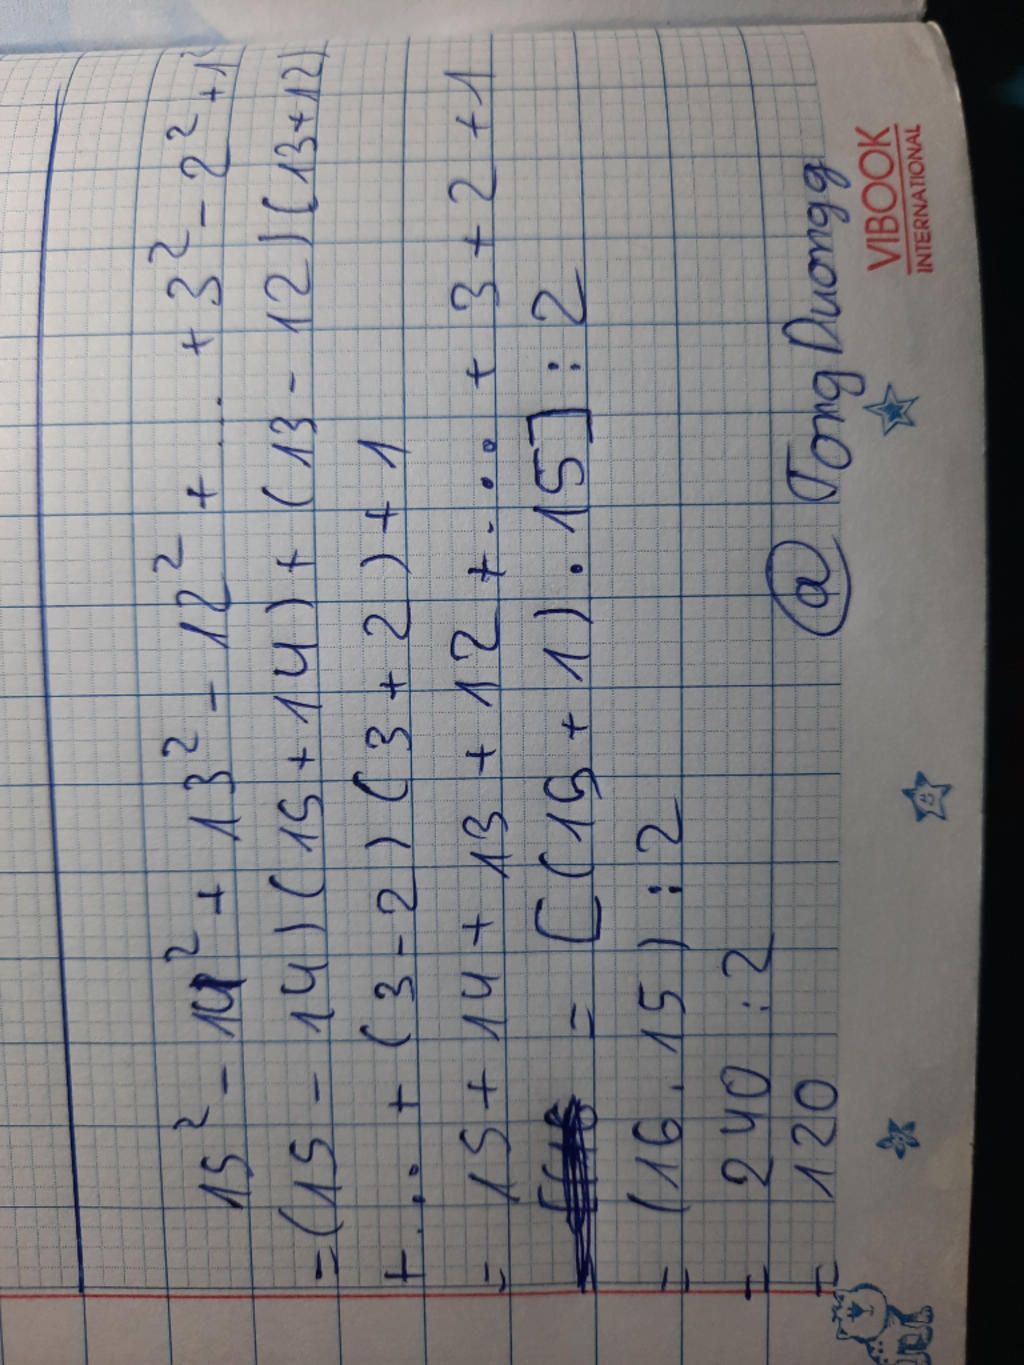 15² - 14² + 13² - 12² + ... + 3² - 2² + 1²
= (15 - 14)(15 + 14) + (13 - 12)(13 + 12)
+ ... + (3 - 2)(3 + 2) + 1
= 15 + 14 + 13 + 12 + ... + 3 + 2 + 1
= [(15 + 1) . 15] : 2
= (16 . 15) : 2
= 240 : 2
= 120
@ Tong Duongg
VIBOOK
INTERNATIONAL